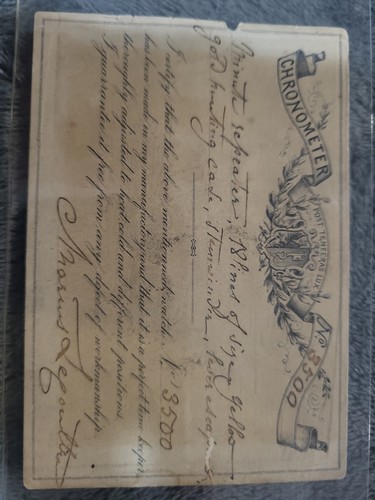 CHRONOMETER
POST TENEBRAS LUX
No 3500
Minute repeater, 18 lines of size, yellow
gold hunting case, Stemwinder,
I certify that the above mentioned watch No 3500
has been made in my manufactory and that it is a perfect time keeper
thoroughly adjusted to heat cold and different positions.
I guarantee it free from any defect of workmanship
Lecoultre